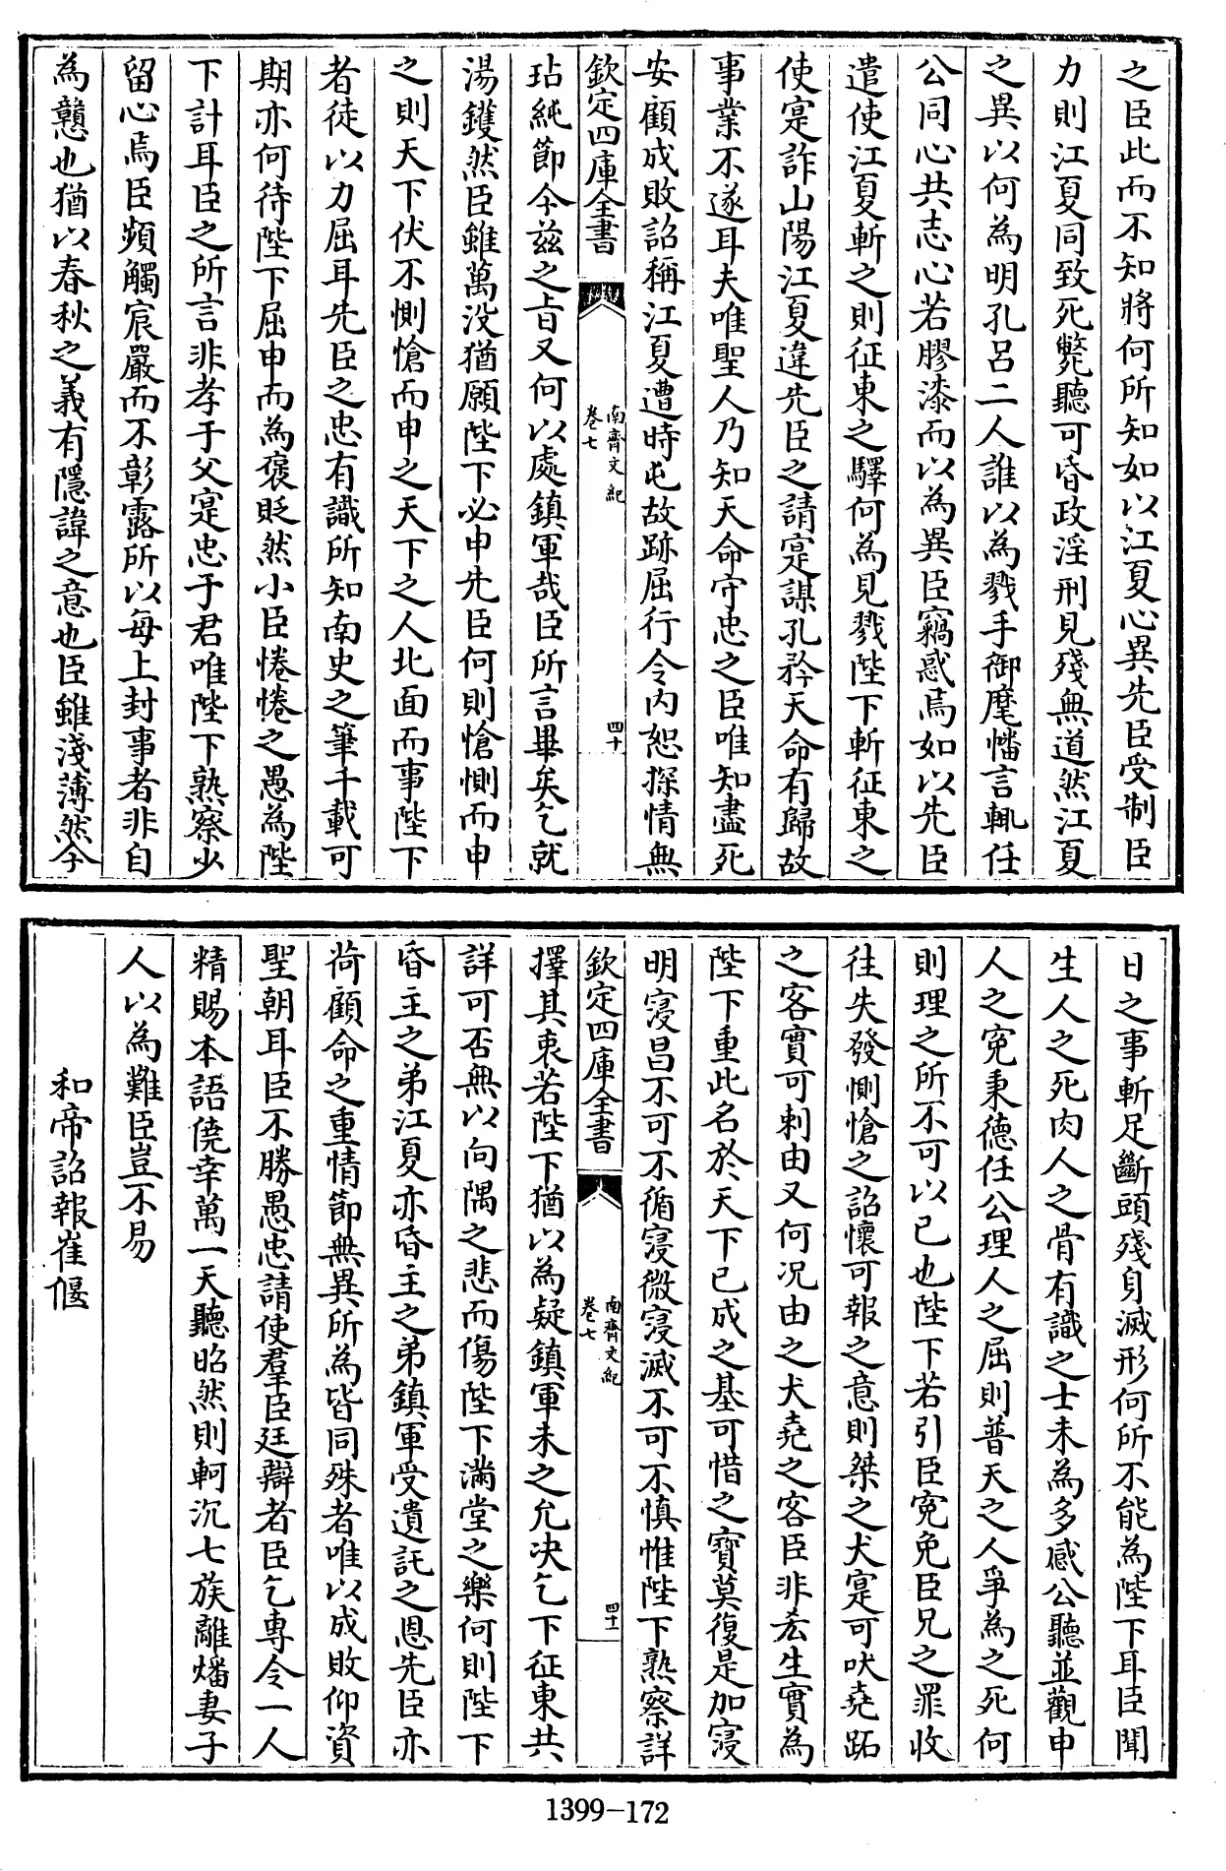 之臣此而不知將何所知如以江夏心異先臣受制臣
力則江夏同致死斃聽可昏政淫刑見殘無道然江夏
之異以何為明孔呂二人誰以為戮手御麾幡言輒任
公同心共志心若膠漆而以為異臣竊惑焉如以先臣
遣使江夏斬之則征東之驛何為見戮陛下斬征東之
使寔詐山陽江夏違先臣之請寔謀孔矜天命有歸故
事業不遂耳夫唯聖人乃知天命守忠之臣唯知盡死
安顧成敗詔稱江夏遭時屯故跡屈行令内恕探情無
欽定四庫全書
南齊文紀
卷七
四十
玷純節今茲之旨又何以處鎮軍哉臣所言畢矣乞就
湯鑊然臣雖萬没猶願陛下必申先臣何則愴惻而申
之則天下伏不惻愴而申之天下之人北面而事陛下
者徒以力屈耳先臣之忠有識所知南史之筆千載可
期亦何待陛下屈申而為褒貶然小臣惓惓之愚為陛
下計耳臣之所言非孝于父寔忠于君唯陛下熟察少
留心焉臣頻觸宸嚴而不彰露所以每上封事者非自
為戇也猶以春秋之義有隱諱之意也臣雖淺薄然今
日之事斬足斷頭殘身滅形何所不能為陛下耳臣聞
生人之死肉人之骨有識之士未為多感公聽並觀申
人之寃秉德任公理人之屈則普天之人爭為之死何
則理之所不可以已也陛下若引臣寃免臣兄之罪收
往失發惻愴之詔懷可報之意則桀之犬寔可吠堯跖
之客實可刺由又何况由之犬堯之客臣非㳟生實為
陛下重此名於天下已成之基可惜之寶莫復是加寖
明寖昌不可不循寖微寖滅不可不慎惟陛下熟察詳
欽定四庫全書
南齊文紀
卷七
四十一
擇其衷若陛下猶以為疑鎮軍未之允决乞下征東共
詳可否無以向隅之悲而傷陛下滿堂之樂何則陛下
昏主之弟江夏亦昏主之弟鎮軍受遺託之恩先臣亦
荷顧命之重情節無異所為皆同殊者唯以成敗仰資
聖朝耳臣不勝愚忠請使羣臣廷辯者臣乞專令一人
精賜本語僥幸萬一天聽昭然則軻沉七族離燔妻子
人以為難臣豈不易
和帝詔報崔偃
1399-172